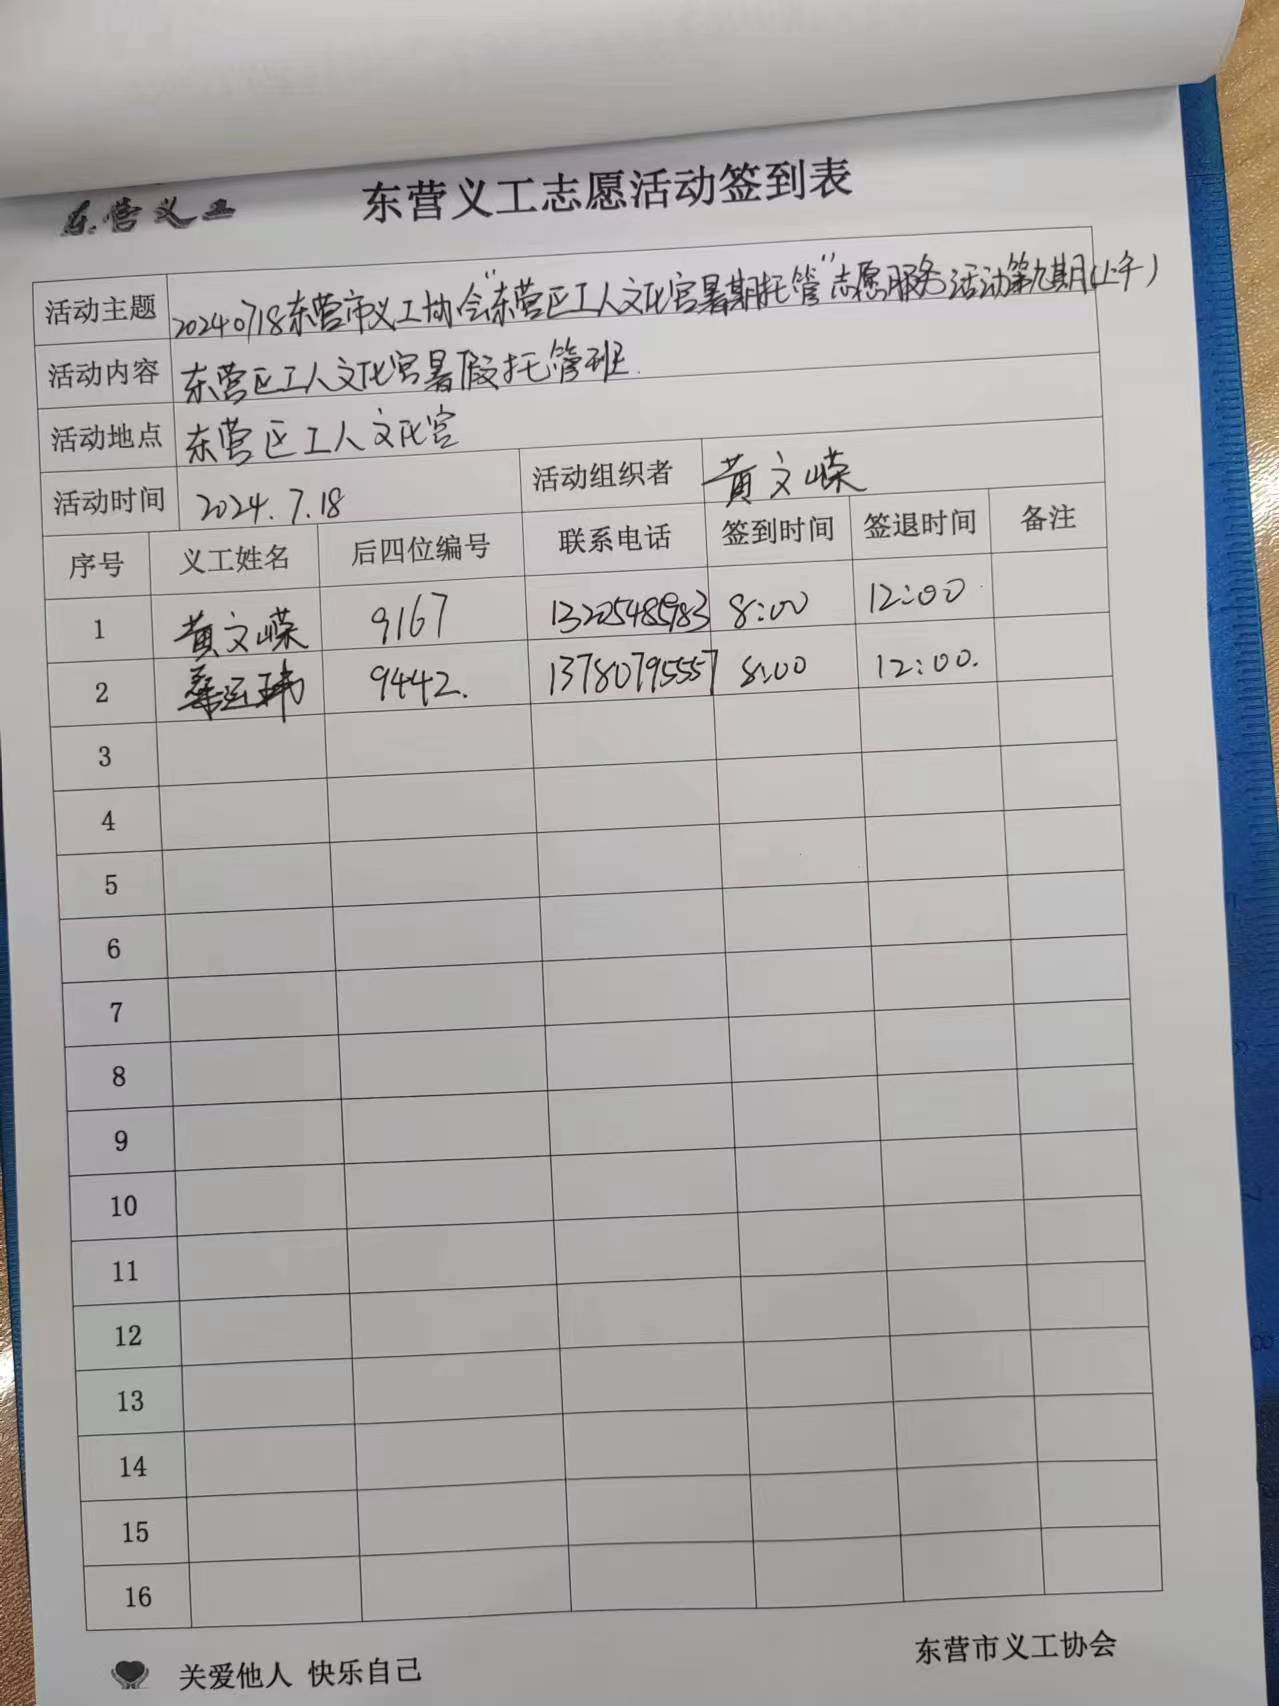 东营义工 东营义工志愿活动签到表
活动主题 20240718东营市义工协会“东营区工人文化宫暑期托管”志愿服务活动第九期(上午)
活动内容 东营区工人文化宫暑假托管班.
活动地点 东营区工人文化宫
活动时间 2024.7.18 活动组织者 黄文嵘
序号 义工姓名 后四位编号 联系电话 签到时间 签退时间 备注
1 黄文嵘 9167 13205485983 8:00 12:00
2 9442. 13780795557 8:00 12:00.
3
4
5
6
7
8
9
10
11
12
13
14
15
16
关爱他人 快乐自己 东营市义工协会